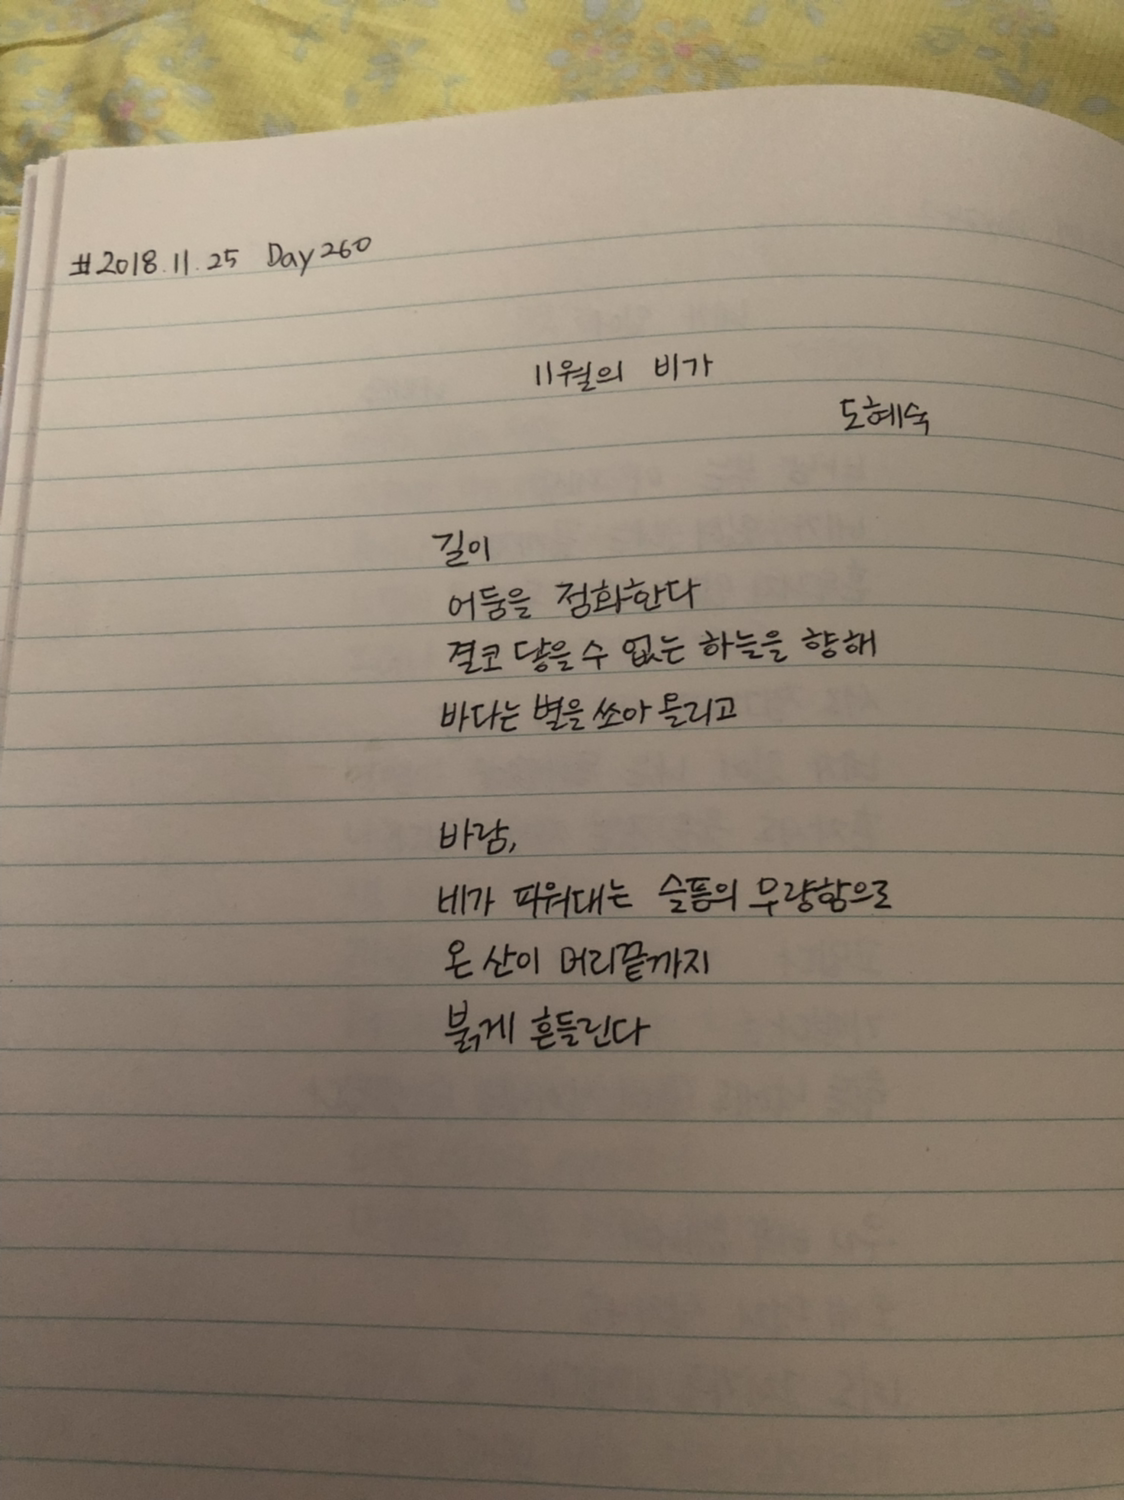 #2018.11.25 Day 260
11월의 비가
도혜숙
길이
어둠을 점화한다
결코 닿을 수 없는 하늘을 향해
바다는 별을 쏘아 올리고
바람,
네가 피워대는 슬픔의 무량함으로
온 산이 머리끝까지
붉게 흔들린다